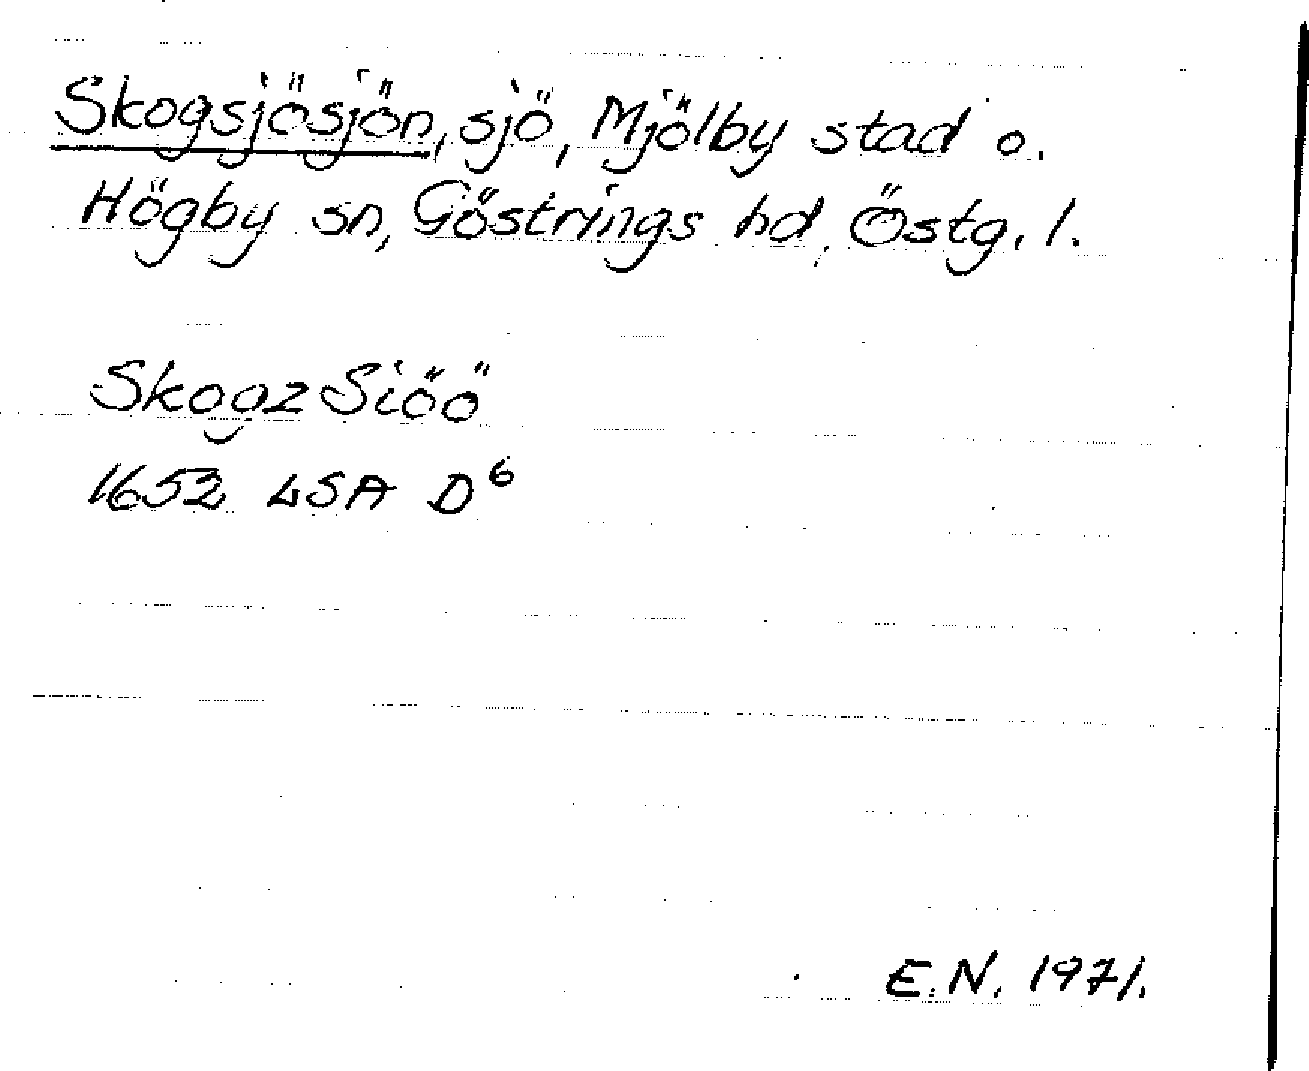 Skogsjösjön, sjö, Mjölby stad o.
Högby sn, Göstrings hd, Östg. l.
Skogz Siöö
1652 LSA D6
E.N. 1971.